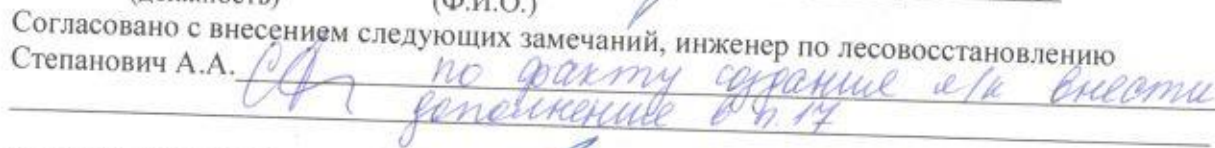 (должность) (Ф.И.О.)
Согласовано с внесением следующих замечаний, инженер по лесовосстановлению
Степанович А.А. по факту создания л/к внести
дополнение в п. 17